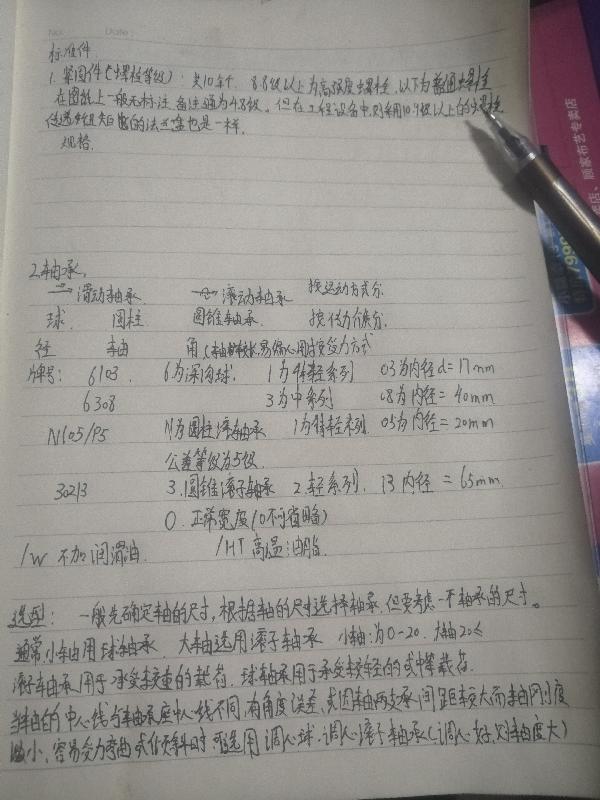 No.  Date:
标准件.
1. 紧固件(螺栓等级): 共10个. 8.8级以上为高强度螺栓. 以下为普通螺栓
在图纸上一般无标注, 备注通为4.8级. 但在工程设备中,则采用10.9级以上的螺栓
的法兰盘也是一样.
规格.
2. 轴承.
滑动轴承. 滚动轴承 按运动方式分
球. 圆柱 圆锥轴承. 按传力介质分.
径 轴 角 受力方式
牌号: 6103. 6为深沟球. 1为特轻系列 03为内径d=17mm
6308 3为中系列 08为内径=40mm
N105/P5 N为圆柱滚轴承 1为特轻系列 05为内径=20mm
公差等级为5级.
30213 3.圆锥滚子轴承 2.轻系列. 13内径=65mm.
0.正常宽度(0不可省略)
/W 不加润滑油. /HT 高温油脂.
选型: 一般先确定轴的尺寸, 根据轴的尺寸选择轴承. 但要考虑一下轴承的尺寸。
通常小轴用球轴承. 大轴选用滚子轴承 小轴:为0-20. 大轴20≤
滚子轴承用于承受较重的载荷. 球轴承用于承受较轻的或中等载荷.
当轴的中心线与轴承座中心线不同, 有角度误差, 或因轴两支承间距较大而轴刚度
小, 容易受力弯曲或倾斜时 可选用调心球.调心滚子轴承(调心好,对轴度大)
顾家布艺专卖店